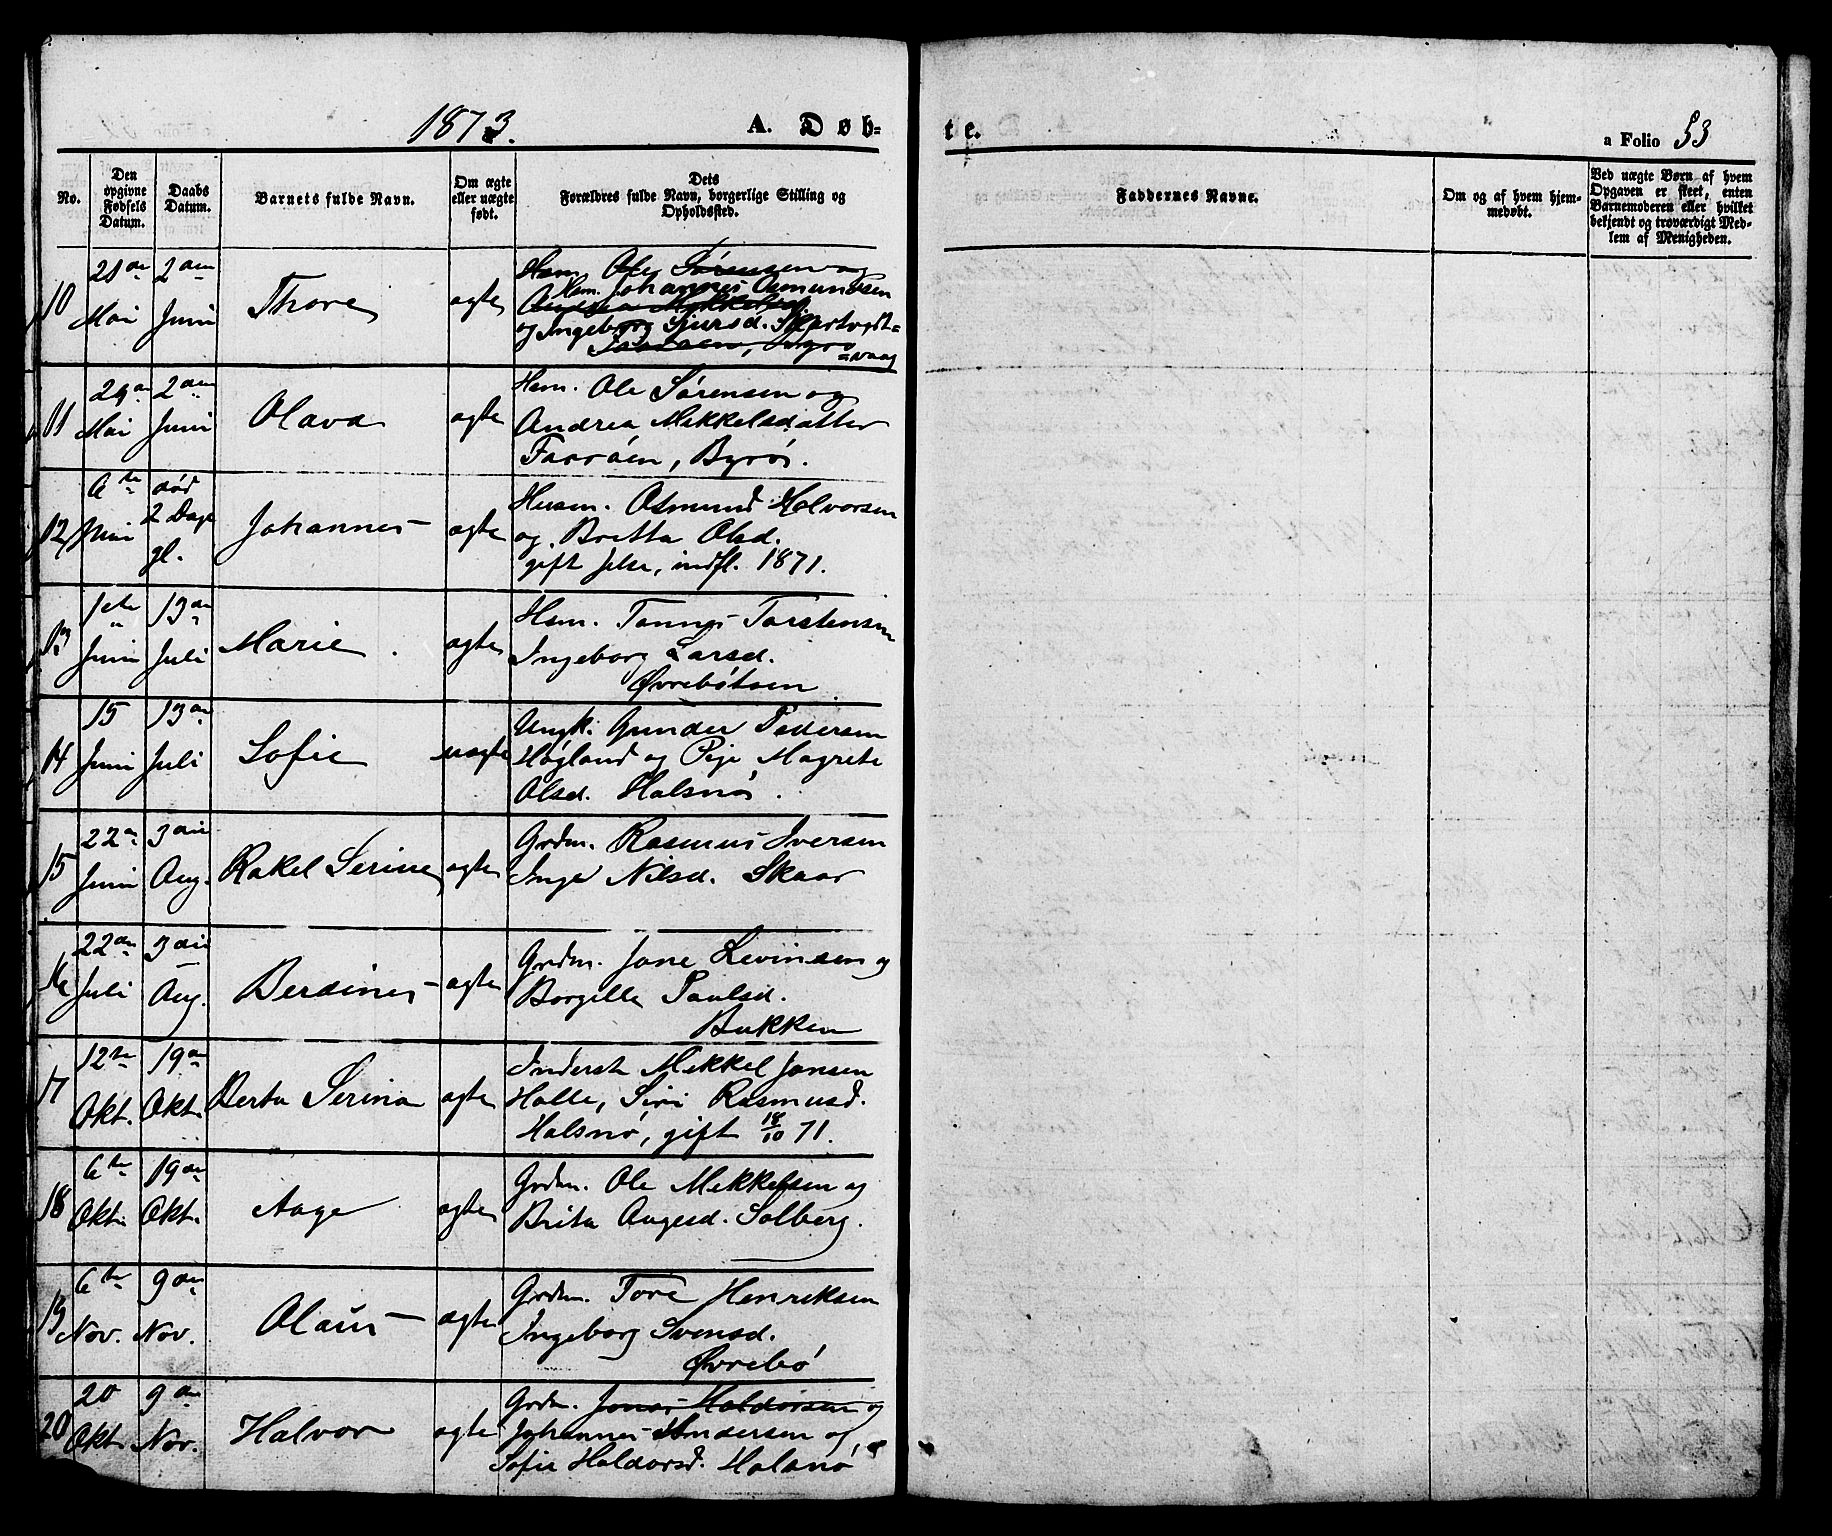 1873.
A. Døb-
te.
a Folio 53
No.
Den opgivne Fødsels Datum.
Daabs Datum.
Barnets fulde Navn.
Om ægte eller uægte født.
Dets Forældres fulde Navn, borgerlige Stilling og Opholdssted.
Faddernes Navne.
Om og af hvem hjemmedøbt.
Ved uægte Børn af hvem Opgaven er skeet, enten Barnemoderen eller hvilket bekjendt og troværdigt Medlem af Menigheden.
10
Mai
2den Juni
Thore
ægte
Hsm. Ole Sørensen og
Hsm. Johannes Osmundsen
Andrea Mikkelsd
og Ingeborg Sjursd.
Farröen, Byrö
=vaag
11
Mai
2den Juni
Olava
ægte
Hsm. Ole Sørensen og
Andrea Mikkelsdatter
Farröen, Byrö.
12
6te Juni
død 2 Dage gl.
Johannes
ægte
Husm. Osmund Halvorsen
og Britta Olsd.
gift Jelse, indfl. 1871.
13
1ste Juni
13de Juli
Marie.
ægte
Hsm. Tønnes Torstensen
Ingeborg Larsd.
Øvrebötsen
14
15 Juni
13de Juli
Sofie
uægte
Ungk. Gunder Pedersen
Høgland og Pige Magrete
Olsd. Halsnö.
15
22de Juni
3die Aug.
Rakel Serine
ægte
Grdm. Rasmus Iversen
Inge Nilsd. Skaar
16
22de Juli
3die Aug.
Berdines
ægte
Grdm. Jone Levinsen og
Borgilla Paulsd.
Bakken
17
12te Okt.
19de Okt.
Berta Serina
ægte
Inderst Mikkel Jonsen
Halle, Siri Rasmusd.
Halsnö, gift 18/10 71.
18
6te Okt.
19de Okt.
Aage
ægte
Grdm. Ole Mikkelsen og
Brita Aagesd. Solberg.
19
6te Nov.
9de Nov.
Olaus
ægte
Grdm. Tore Henriksen
Ingeborg Svensd.
Øvrebö
20
20 Okt.
9de Nov.
Halvor
ægte
Grdm. Jonas Haldorsen og
Johannes Andersen og
Sofie Haldorsd. Halsnö